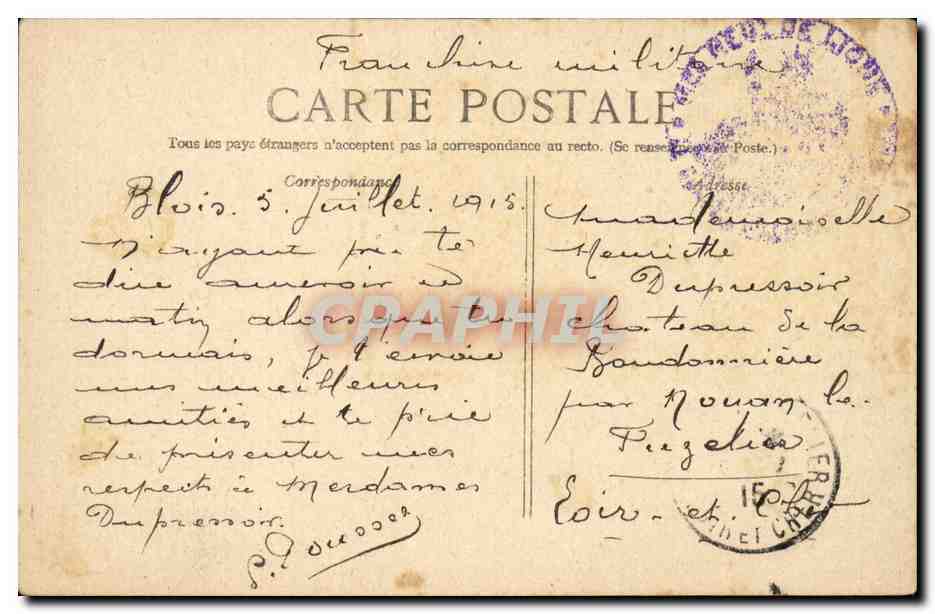 Franchise militaire
CARTE POSTALE
Tous les pays étrangers n'acceptent pas la correspondance au recto. (Se renseigner à la Poste.)
Correspondance
Adresse
Blois. 5. Juillet. 1915.
N'ayant pu te
dire au revoir ce
matin alors que tu
dormais, je t'envoie
mes meilleures
amitiés et te prie
de présenter mes
respects à Mesdames
Dupressoir.
Mademoiselle
Henriette
Dupressoir
chateau de la
par Nouan le
Fuzelier
Loir-et-Cher
15
ET CHER
CPAPHIL